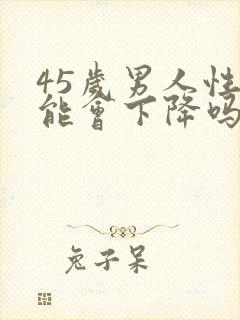 45歲男人性
能會下降嗎
兔子呆